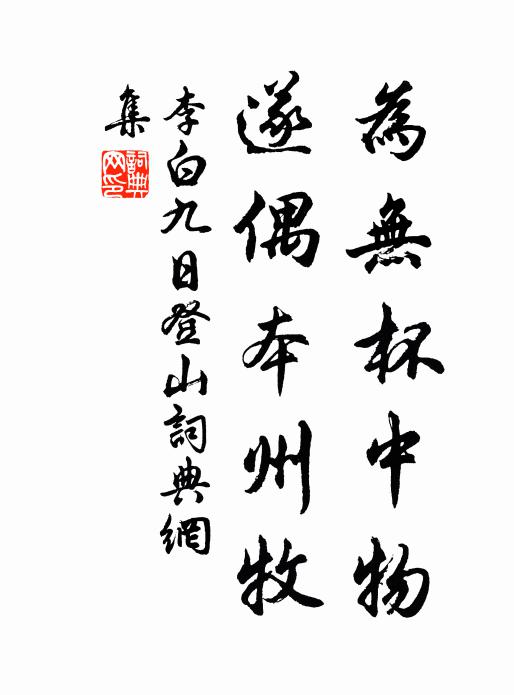 為無杯中物
遂偶本州牧
李白九日登山詞典網
集
詞典
网印